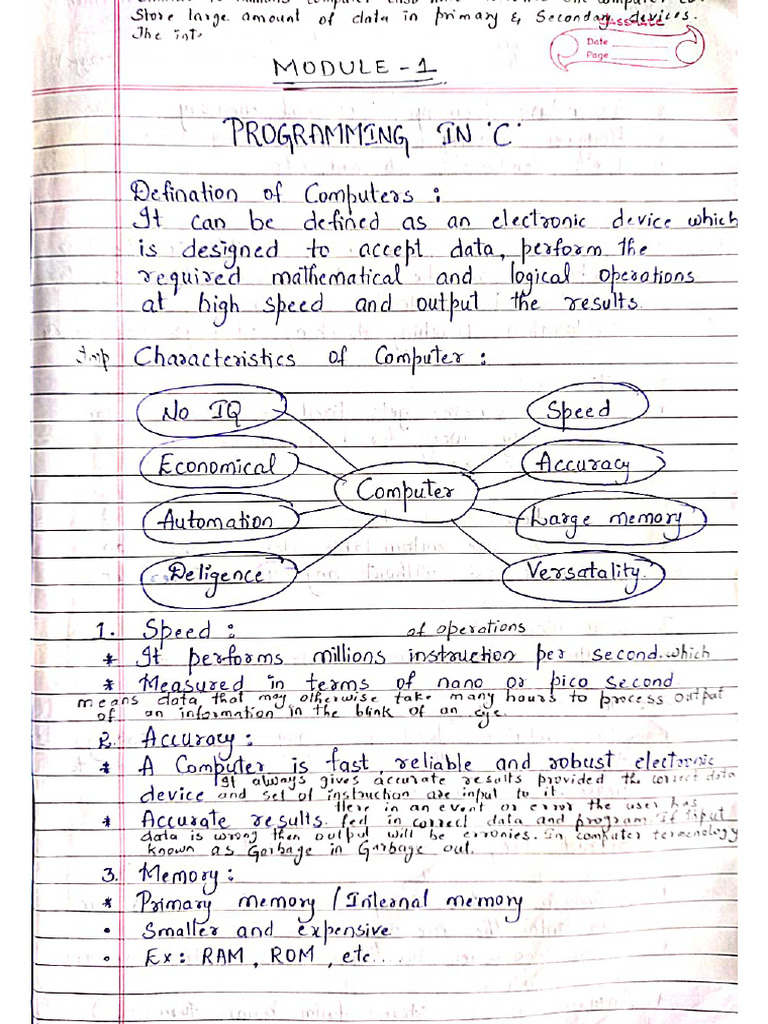 Store large amount of data in primary & Secondary devices.
The int.
Date
Page
MODULE - 1
PROGRAMMING IN 'C'
Defination of Computers :
It can be defined as an electronic device which
is designed to accept data, perform the
required mathematical and logical operations
at high speed and output the results
Imp Characteristics of Computer :
No IQ
Speed
Economical
Accuracy
Computer
Automation
Large memory
Deligence
Versatality.
1. Speed :
of operations
* It performs millions instruction per second. which
* Measured in terms of nano or pico second
means data that may otherwise take many hours to process output
of an information in the blink of an eye.
2. Accuracy :
* A Computer is fast, reliable and robust electronic
It always gives accurate results provided the correct data
device and set of instruction are input to it.
Here in an event or error the user has
* Accurate results. fed in correct data and program. If input
data is wrong then output will be erronies. In computer termenology
known as Garbage in Garbage out.
3. Memory :
* Primary memory / Internal memory
• Smaller and expensive
• Ex : RAM, ROM, etc...